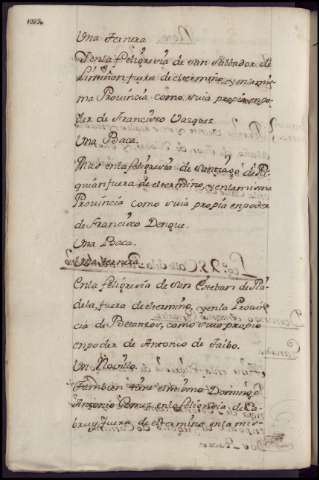 Una Ternera
Y en la feligresia de San Salbador de
Limiñon fuera de este termino, y en la mis-
ma Provincia como suia propia en po-
der de Francisco Vazquez
Una Baca.
Mas en la feligresia de Santiago de Re-
quian fuera de este termino, y en la misma
Provincia como suia propia en poder
de Francisco Denque.
Una Baca.
Una ternera.
En la feligresia de San Esteban de Pia-
dela fuera de este termino, y en la Provin-
cia de Betanzos, como suio propio
en poder de Antonio de Taibo.
Un Novillo.
Tambien tiene el mismo Domingo
Antonio Gomez en la feligresia de
bru y fuera de este termino en la mis-